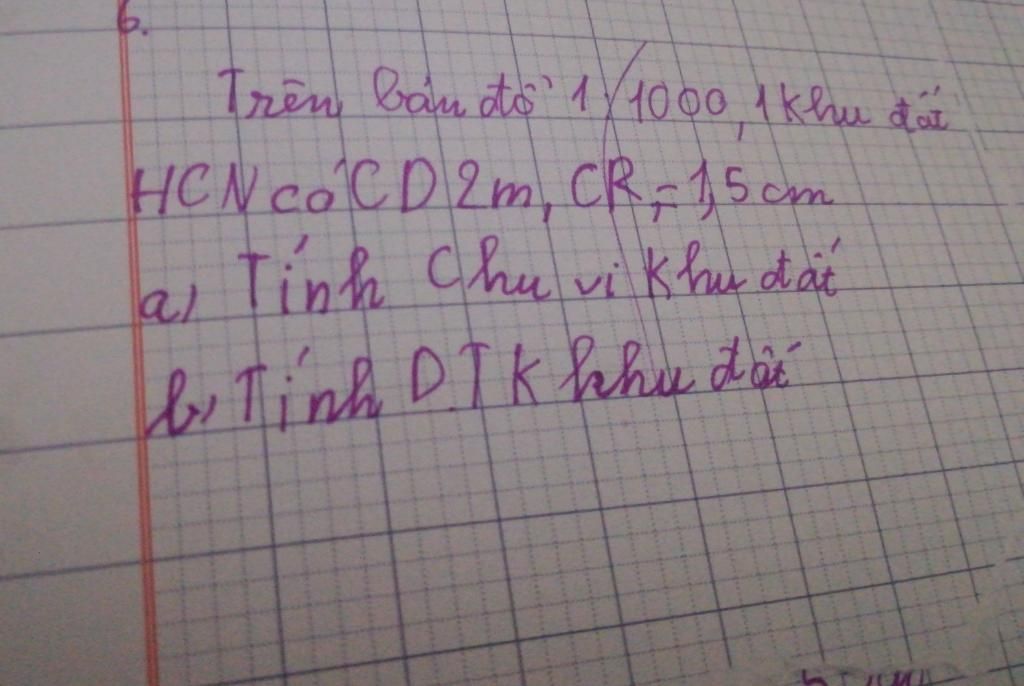 6.
Trên bản đồ 1/1000, 1 khu đất
HCN có CD 2m, CR = 1,5 cm
a, Tính Chu vi khu đất
b, Tính DTK khu đất